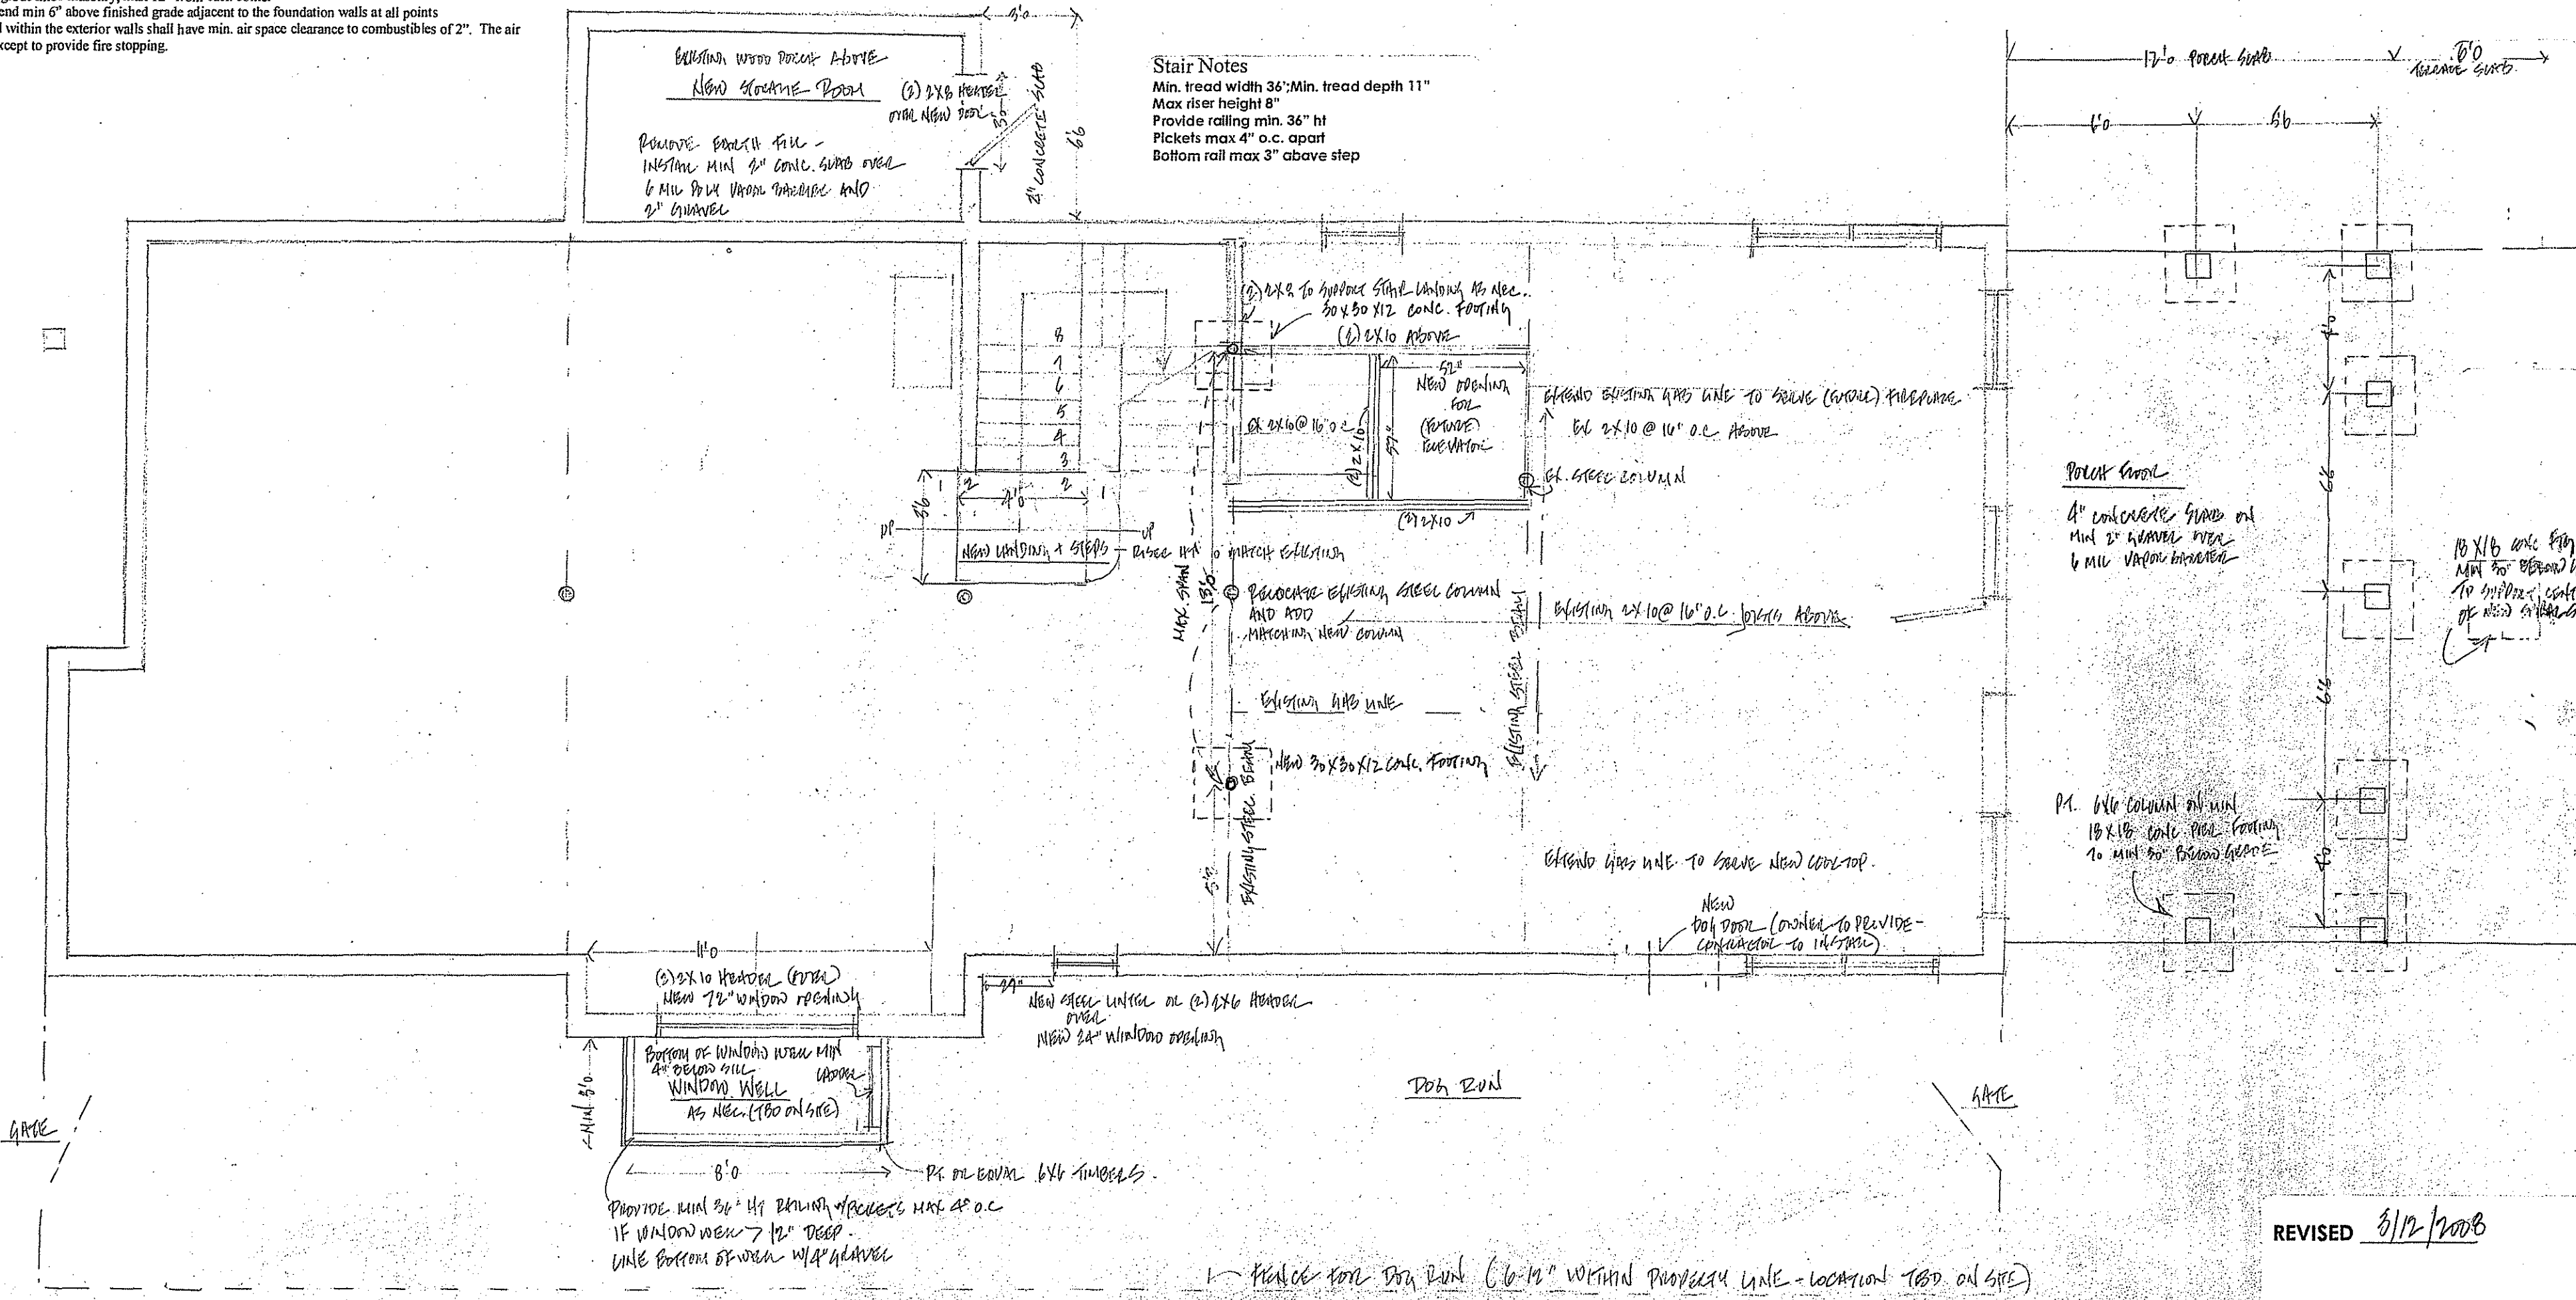 end min 6" above finished grade adjacent to the foundation walls at all points
within the exterior walls shall have min. air space clearance to combustibles of 2". The air
xcept to provide fire stopping.
EXISTING WOOD PORCH ABOVE
NEW STORAGE ROOM
(2) 2X8 HEADER
OVER NEW DOOR
REMOVE EARTH FILL -
INSTALL MIN 2" CONC. SLAB OVER
6 MIL POLY VAPOR BARRIER AND
2" GRAVEL
3'0
2" CONCRETE SLAB
6'6
Stair Notes
Min. tread width 36';Min. tread depth 11"
Max riser height 8"
Provide railing min. 36" ht
Pickets max 4" o.c. apart
Bottom rail max 3" abave step
12'0 PORCH SLAB
6'0
TERRACE SLAB
6'0
5'6
(2) 2X8 TO SUPPORT STAIR LANDING AS NEC.
30X30X12 CONC. FOOTING
(2) 2X10 ABOVE
8
7
6
5
4
3
2
2
1
52"
NEW OPENING
FOR
(FUTURE)
ELEVATOR
EX 2X10 @ 16" O.C.
(2) 2X10
EXTEND EXISTING GAS LINE TO SERVE (FUTURE) FIREPLACE
EX 2X10 @ 16" O.C. ABOVE
EX. STEEL COLUMN
(2) 2X10
4'0
3'6
UP
UP
NEW LANDING & STEPS - RISER HT TO MATCH EXISTING
MAX. SPAN
RELOCATE EXISTING STEEL COLUMN
AND ADD
MATCHING NEW COLUMN
EXISTING 2X10 @ 16" O.C. JOISTS ABOVE
EXISTING STEEL BEAM
EXISTING GAS LINE
NEW 30X30X12 CONC. FOOTING
EXISTING STEEL BEAM
PORCH FLOOR
4" CONCRETE SLAB ON
MIN 2" GRAVEL OVER
6 MIL VAPOR BARRIER
18X18 CONC
TO SUPPORT
OF NEW
6'6
6'6
P.T. 6X6 COLUMN ON MIN
18X18 CONC PIER FOOTING
TO MIN 30" BELOW GRADE
EXTEND GAS LINE TO SERVE NEW COOKTOP.
NEW
DOG DOOR (OWNER TO PROVIDE -
CONTRACTOR TO INSTALL)
11'0
(2) 2X10 HEADER (OVER)
NEW 72" WINDOW OPENING
24"
NEW STEEL LINTEL OR (2) 2X6 HEADER
OVER
NEW 24" WINDOW OPENING
BOTTOM OF WINDOW WELL MIN
4" BELOW SILL
LADDER
WINDOW WELL
AS NEC. (TBD ON SITE)
MIN 3'0
8'0
P.T. OR EQUAL 6X6 TIMBERS.
PROVIDE MIN 36" HT RAILING W/PICKETS MAX 4" O.C
IF WINDOW WELL > 12" DEEP.
LINE BOTTOM OF WELL W/4" GRAVEL
DOG RUN
GATE
GATE
FENCE FOR DOG RUN (6-12" WITHIN PROPERTY LINE - LOCATION TBD ON SITE)
REVISED 3/12/2008